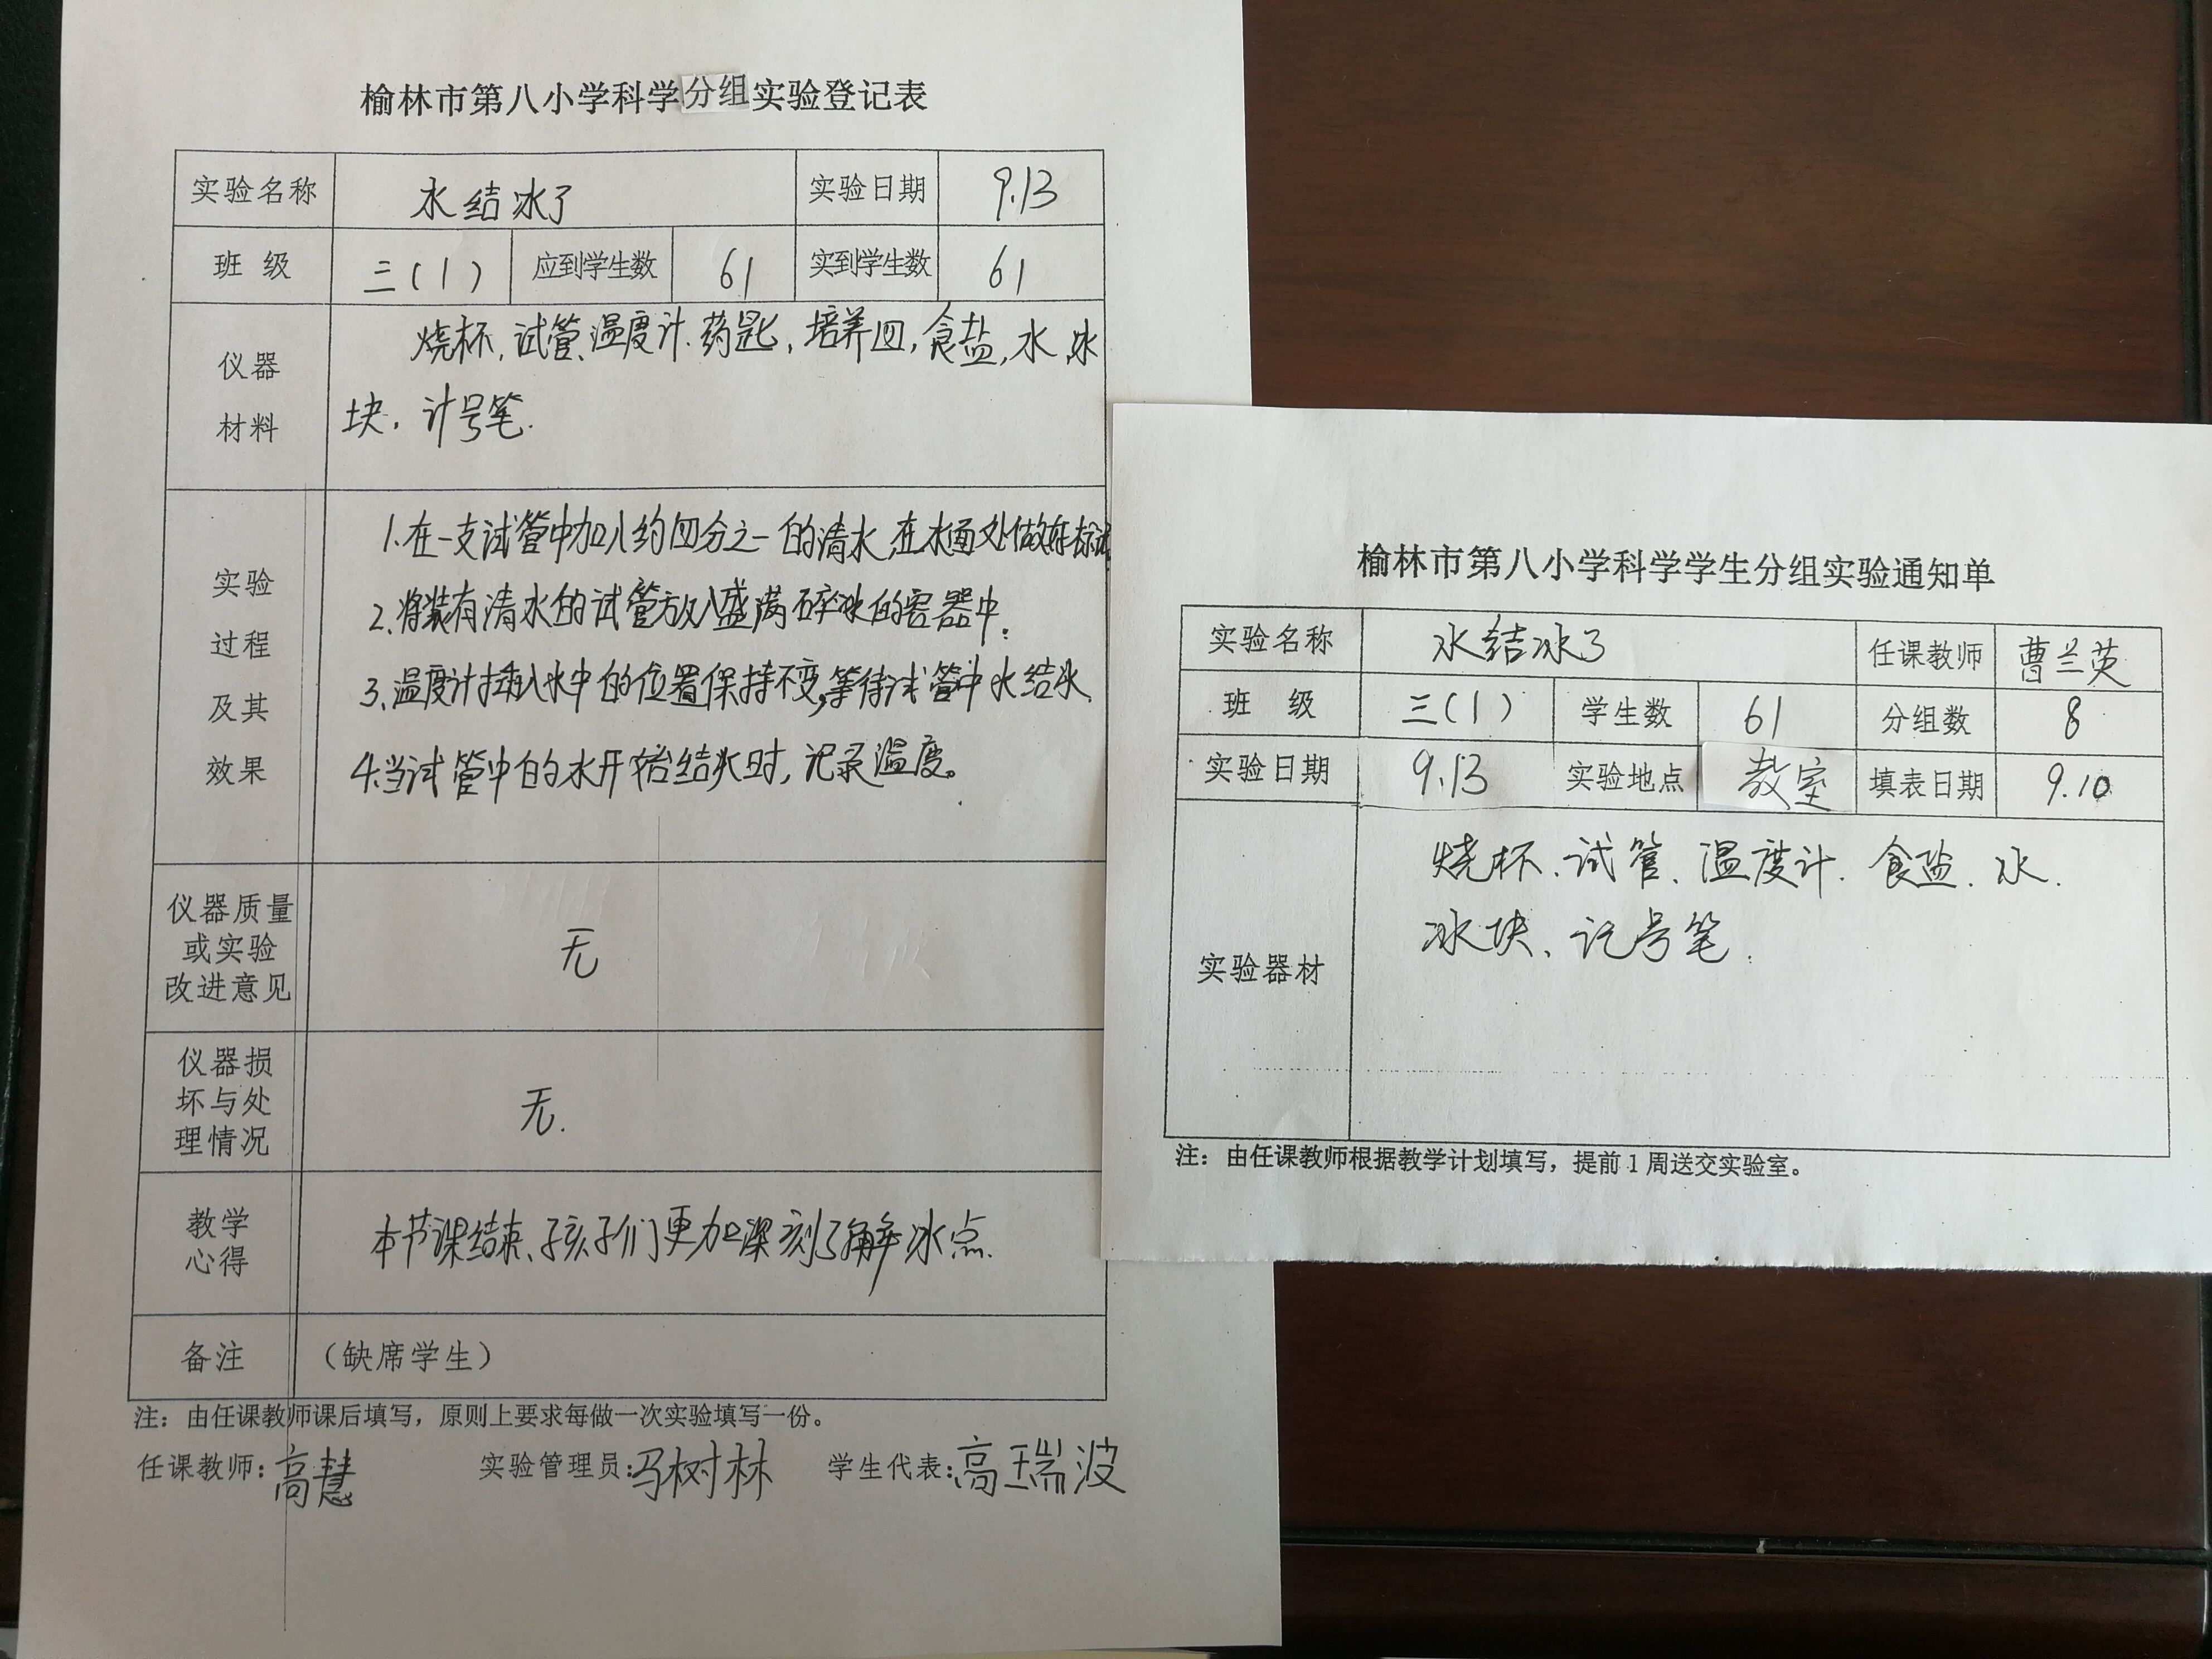 榆林市第八小学科学分组实验登记表
实验名称 水结冰了 实验日期 9.13
班级 三(1) 应到学生数 61 实到学生数 61
仪器材料 烧杯,试管、温度计.药匙,培养皿,食盐,水,冰
块,计号笔.
实验过程及其效果
1.在一支试管中加入约四分之一的清水,在水面处做好标记
2.将装有清水的试管放入盛满碎冰的容器中.
3.温度计插入水中的位置保持不变,等待试管中水结冰.
4.当试管中的水开始结冰时,记录温度。
仪器质量
或实验
改进意见
无
仪器损
坏与处
理情况
无.
教学
心得
本节课结束、孩子们更加深刻了解冰点.
备注 (缺席学生)
注:由任课教师课后填写,原则上要求每做一次实验填写一份。
任课教师:高慧 实验管理员:马树林 学生代表:高瑞波
榆林市第八小学科学学生分组实验通知单
实验名称 水结冰了 任课教师 曹兰英
班级 三(1) 学生数 61 分组数 8
实验日期 9.13 实验地点 教室 填表日期 9.10
实验器材
烧杯、试管、温度计.食盐.水.
冰块、记号笔.
注:由任课教师根据教学计划填写,提前1周送交实验室。